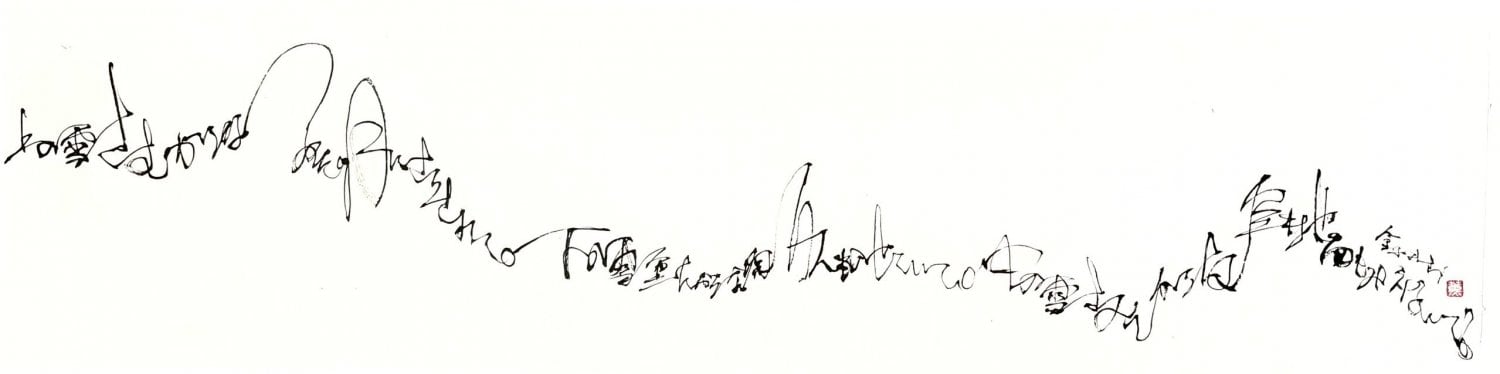 上の雪さむかろな つめたい月がさしていて 下の雪重かろな 何百人ものせていて 中の雪さみしかろな 空も地面もみえないで
金子みすゞ